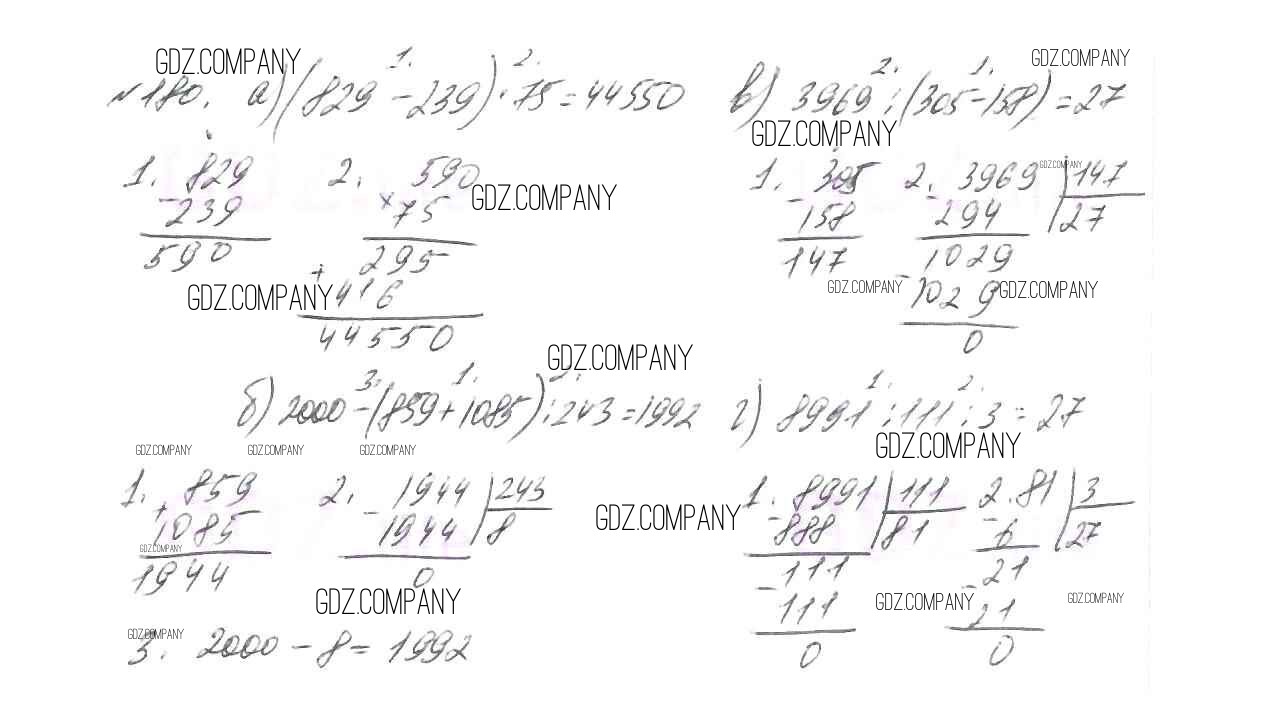 GDZ.COMPANY GDZ.COMPANY
1. 2. 2. 1.
№180. а) (829 - 239) · 75 = 44550 в) 3969 : (305 - 158) = 27
GDZ.COMPANY
1. 829 2. 590 1. 305 2. 3969 147 GDZ.COMPANY
- 239 × 75 GDZ.COMPANY - 158 - 294 27
590 295 147 1029
GDZ.COMPANY + 416 GDZ.COMPANY - 1029 GDZ.COMPANY
44550 0
GDZ.COMPANY
3. 1. 2. 1. 2.
б) 2000 - (859 + 1085) : 243 = 1992 г) 8991 : 111 : 3 = 27
GDZ.COMPANY GDZ.COMPANY GDZ.COMPANY GDZ.COMPANY
1. 859 2. 1944 243 1. 8991 111 2. 81 3
+ 1085 - 1944 8 GDZ.COMPANY - 888 81 - 6 27
GDZ.COMPANY
1944 0 111 21
GDZ.COMPANY - 111 GDZ.COMPANY - 21 GDZ.COMPANY
GDZ.COMPANY
3. 2000 - 8 = 1992 0 0